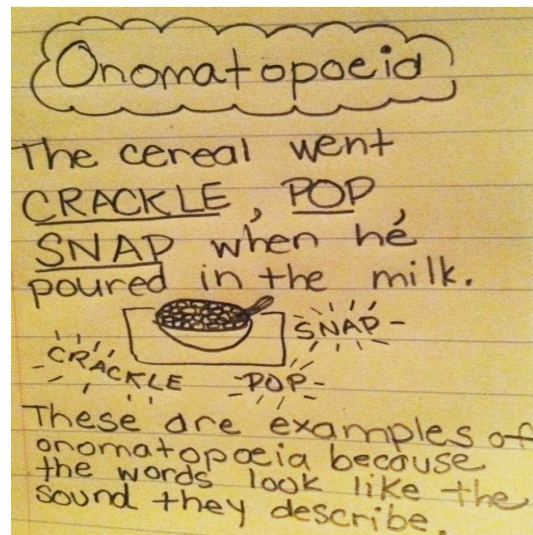 Onomatopoeia
The cereal went
CRACKLE, POP
SNAP when he
poured in the milk.
SNAP
CRACKLE
POP
These are examples of
onomatopoeia because
the words look like the
sound they describe.